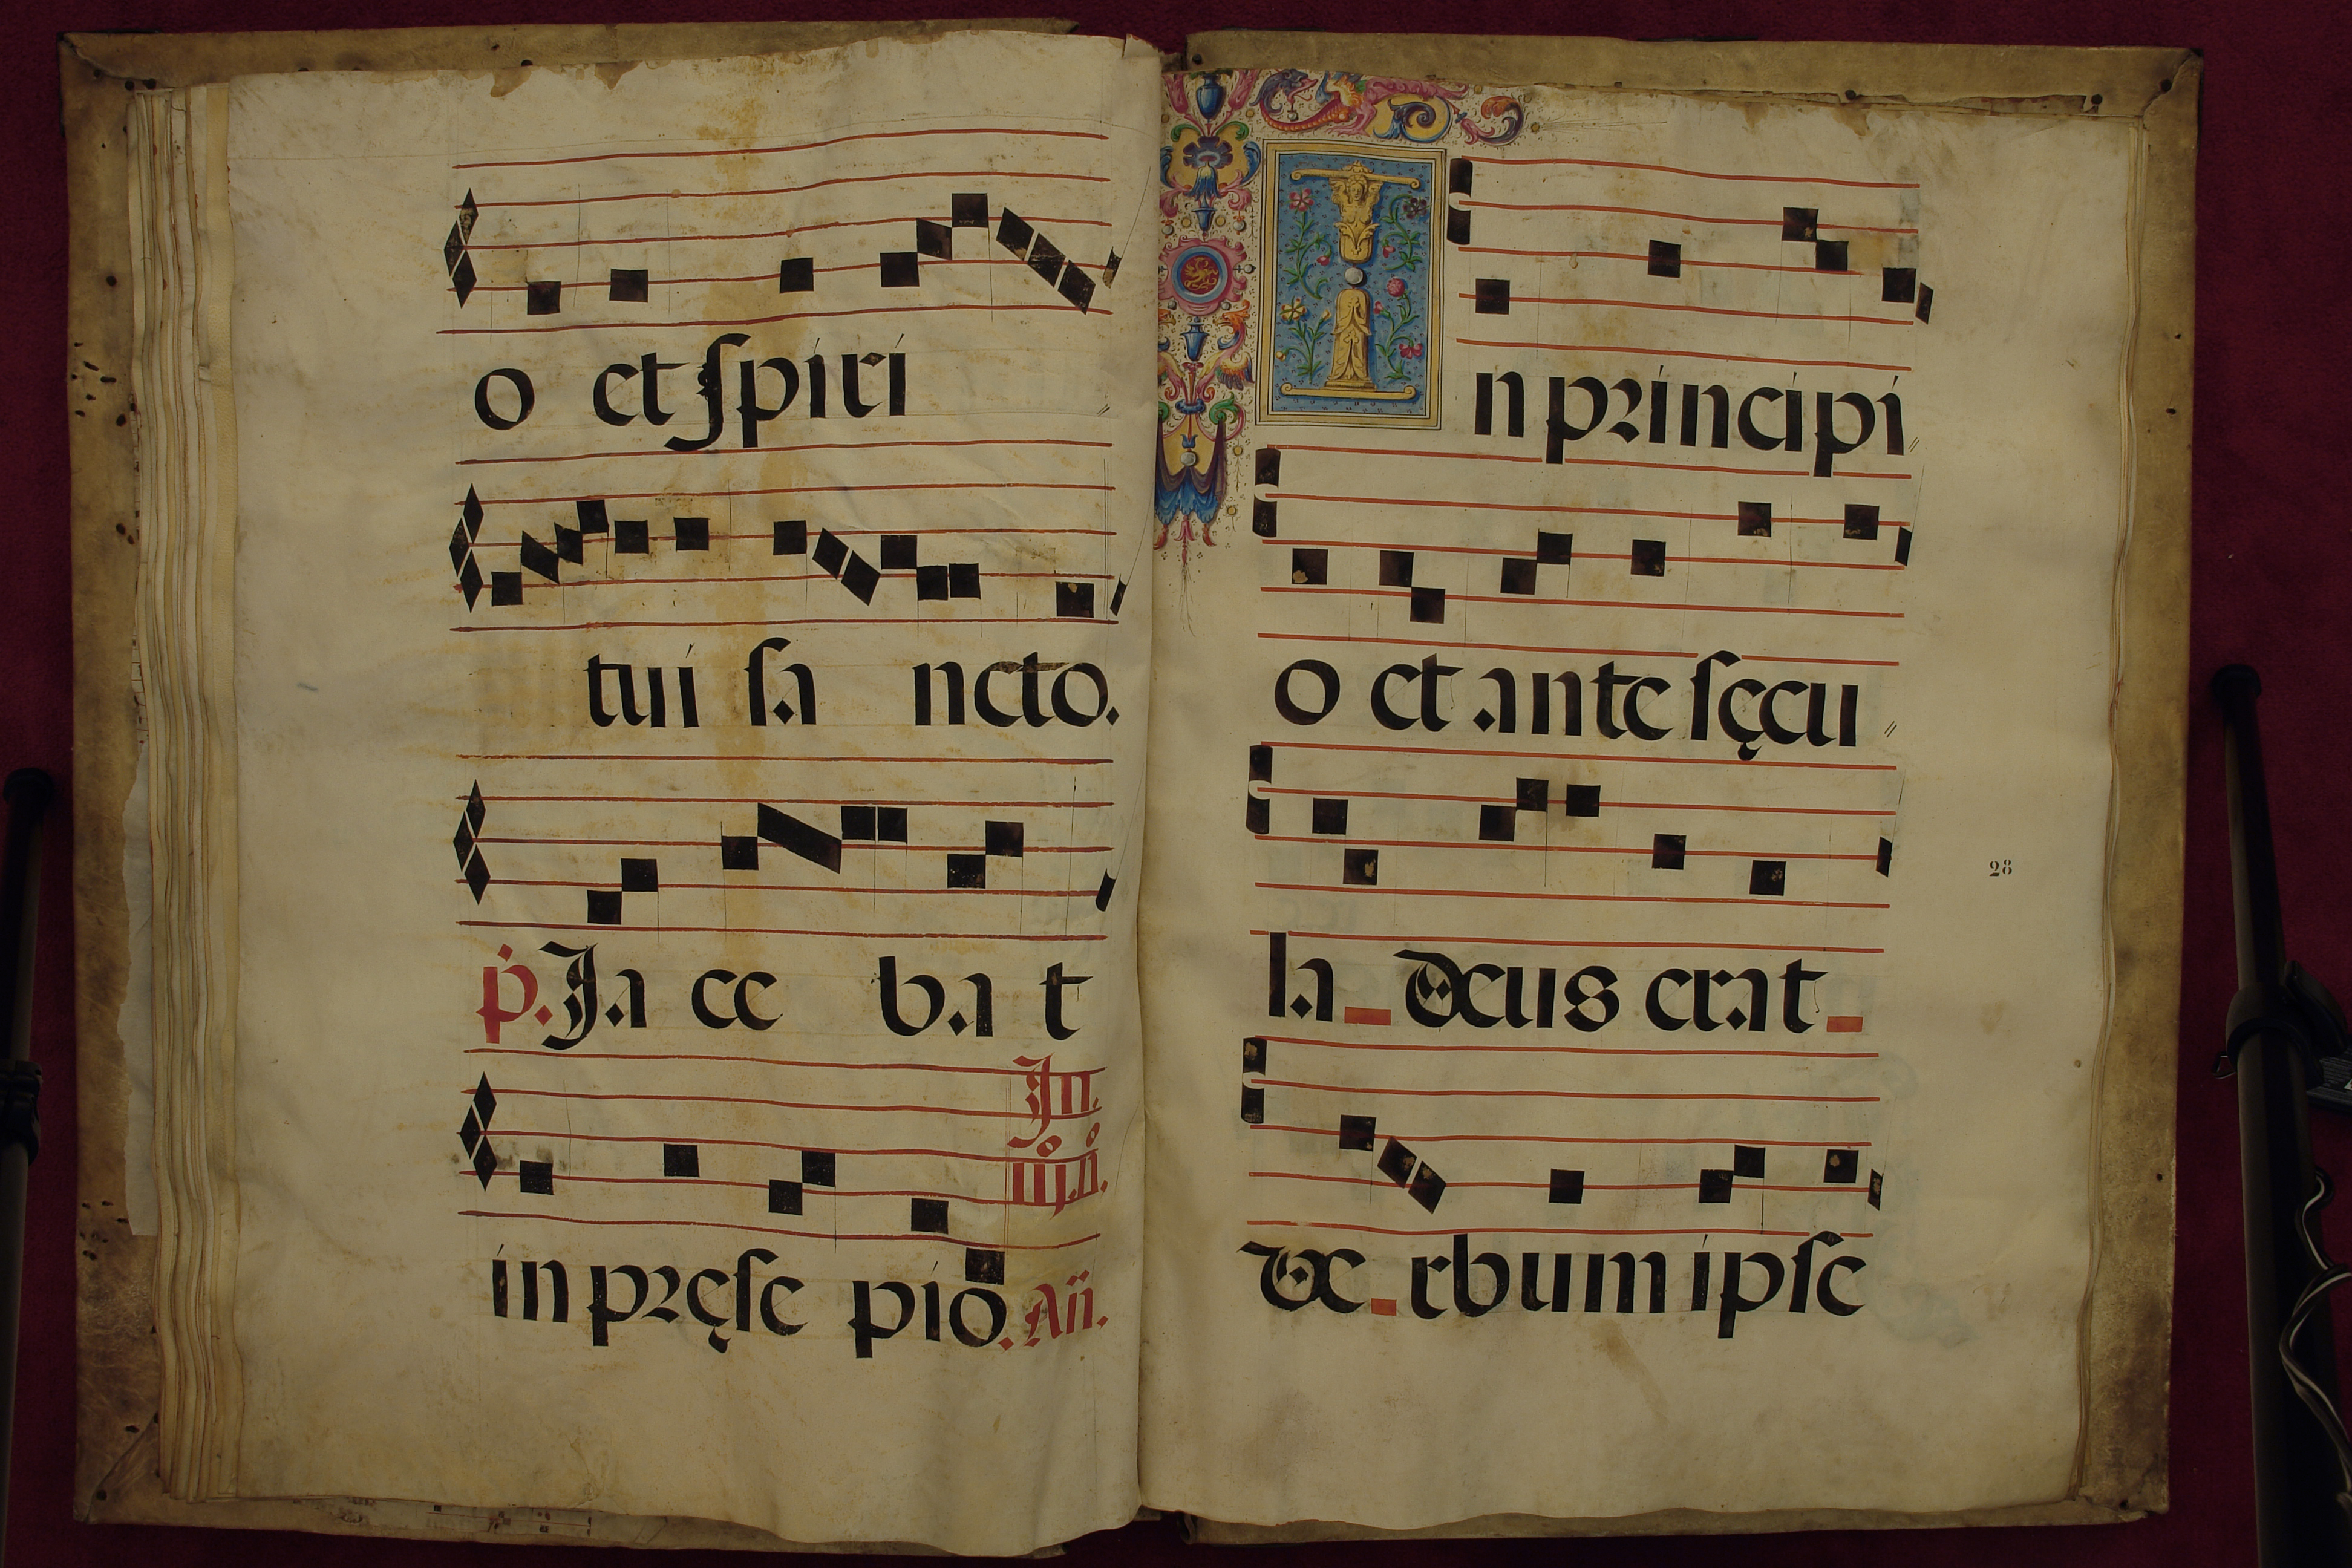 o et ſpiri
tui ſa ncto.
p. Ja ce ba t
In.
in pręſe pio. An.
In principi
o et ante ſęcu
la deus erat
28
ve rbum ipſe